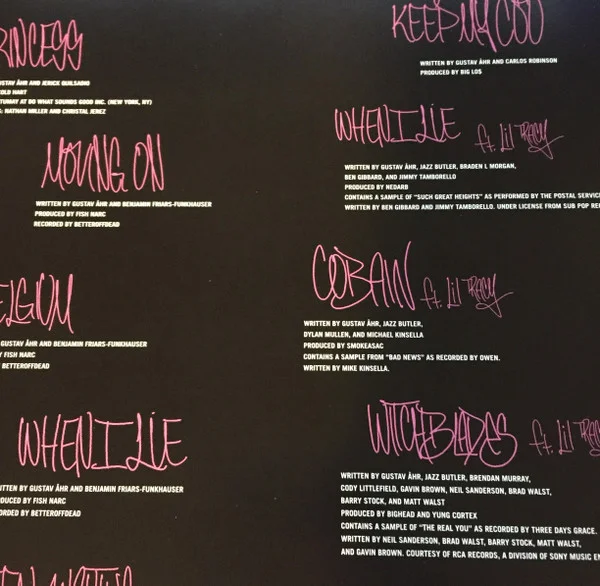 RINCESS
GUSTAV ÅHR AND JERICK QUILSADIO
COLD HART
AT DO WHAT SOUNDS GOOD INC. (NEW YORK, NY)
NATHAN MILLER AND CHRISTAL JEREZ
MOVING ON
WRITTEN BY GUSTAV ÅHR AND BENJAMIN FRIARS-FUNKHAUSER
PRODUCED BY FISH NARC
RECORDED BY BETTEROFFDEAD
ELGIUM
GUSTAV ÅHR AND BENJAMIN FRIARS-FUNKHAUSER
Y FISH NARC
BETTEROFFDEAD
WHEN I LIE
ITTEN BY GUSTAV ÅHR AND BENJAMIN FRIARS-FUNKHAUSER
ODUCED BY FISH NARC
ORDED BY BETTEROFFDEAD
KEEP MY COO
WRITTEN BY GUSTAV ÅHR AND CARLOS ROBINSON
PRODUCED BY BIG LOS
WHEN I LIE ft. LIL TRACY
WRITTEN BY GUSTAV ÅHR, JAZZ BUTLER, BRADEN L MORGAN,
BEN GIBBARD, AND JIMMY TAMBORELLO
PRODUCED BY NEDARB
CONTAINS A SAMPLE OF "SUCH GREAT HEIGHTS" AS PERFORMED BY THE POSTAL SERVIC
WRITTEN BY BEN GIBBARD AND JIMMY TAMBORELLO. UNDER LICENSE FROM SUB POP RE
COBAIN ft. LIL TRACY
WRITTEN BY GUSTAV ÅHR, JAZZ BUTLER,
DYLAN MULLEN, AND MICHAEL KINSELLA
PRODUCED BY SMOKEASAC
CONTAINS A SAMPLE FROM "BAD NEWS" AS RECORDED BY OWEN.
WRITTEN BY MIKE KINSELLA.
WITCHBLADES ft. LIL TRAC
WRITTEN BY GUSTAV ÅHR, JAZZ BUTLER, BRENDAN MURRAY,
CODY LITTLEFIELD, GAVIN BROWN, NEIL SANDERSON, BRAD WALST,
BARRY STOCK, AND MATT WALST
PRODUCED BY BIGHEAD AND YUNG CORTEX
CONTAINS A SAMPLE OF "THE REAL YOU" AS RECORDED BY THREE DAYS GRACE.
WRITTEN BY NEIL SANDERSON, BRAD WALST, BARRY STOCK, MATT WALST,
AND GAVIN BROWN. COURTESY OF RCA RECORDS, A DIVISION OF SONY MUSIC EN